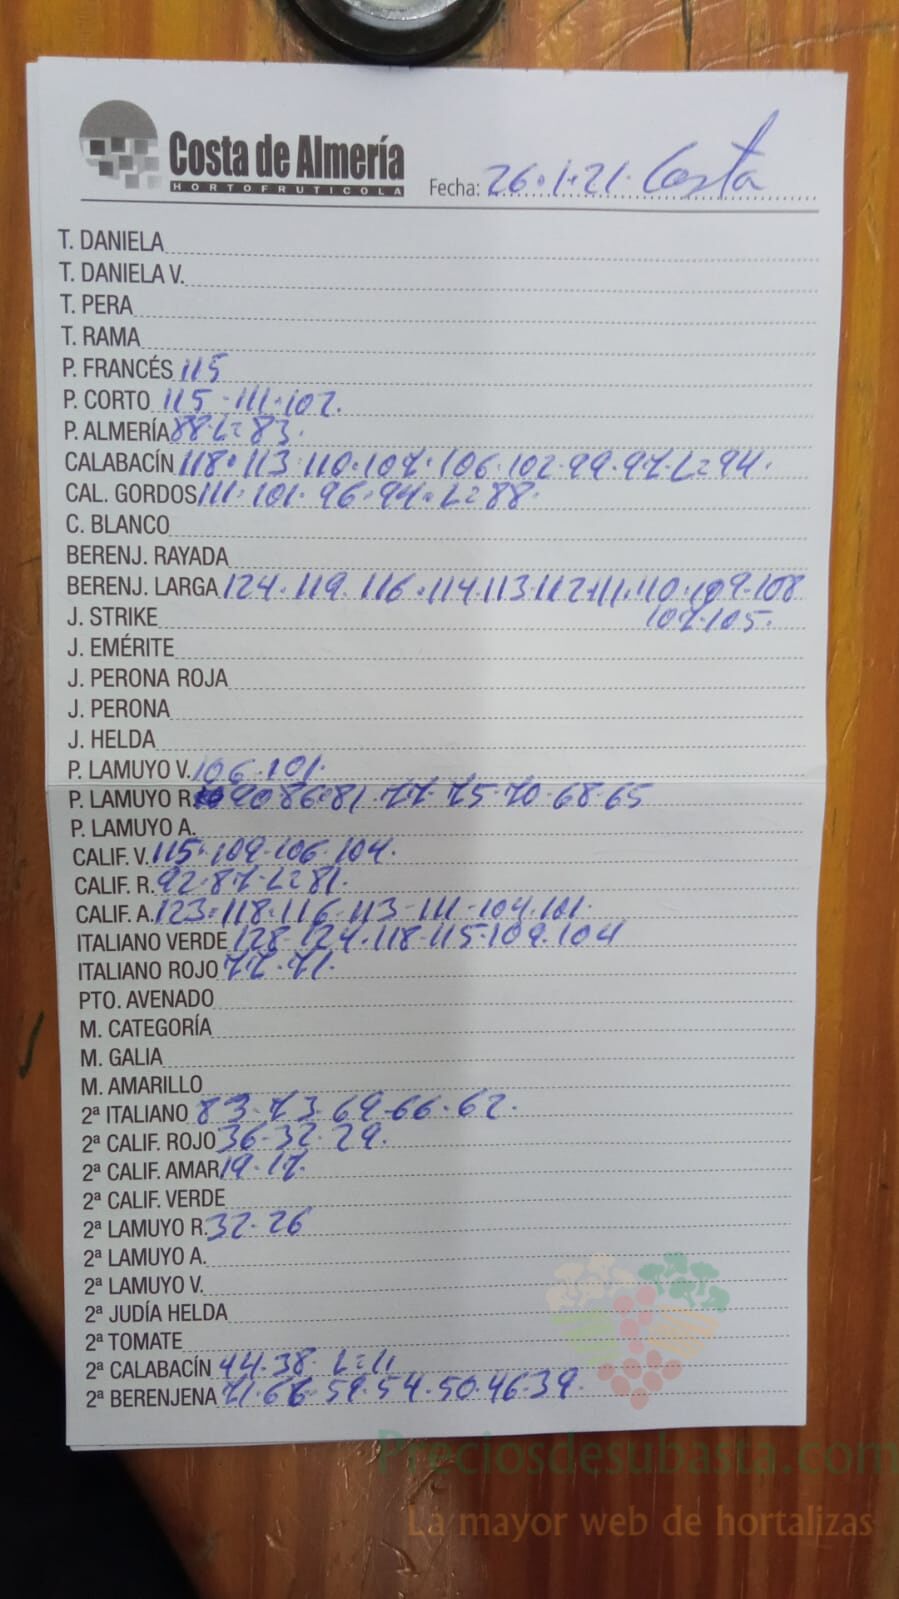 Costa de Almería
HORTOFRUTICOLA
Fecha: 26.1.21. Costa
T. DANIELA
T. DANIELA V.
T. PERA
T. RAMA
P. FRANCÉS 115
P. CORTO 115-111-107.
P. ALMERÍA 88-L=83.
CALABACÍN 118.113.110.107.106.102.99.97.L=94.
CAL. GORDOS 111.101.96.94.L=88.
C. BLANCO
BERENJ. RAYADA
BERENJ. LARGA 124.119.116.114.113.112.111.110.109.108
J. STRIKE 107.105.
J. EMÉRITE
J. PERONA ROJA
J. PERONA
J. HELDA
P. LAMUYO V. 106.101.
P. LAMUYO R. 90.86.81.77.75.70.68.65
P. LAMUYO A.
CALIF. V. 115.109.106.104.
CALIF. R. 92.87.L=81.
CALIF. A. 123.118.116.113-111-104.101.
ITALIANO VERDE 128-124.118-115.109.104
ITALIANO ROJO 77.71.
PTO. AVENADO
M. CATEGORÍA
M. GALIA
M. AMARILLO
2ª ITALIANO 83.73.69.66.62.
2ª CALIF. ROJO 36-32.29.
2ª CALIF. AMAR 19.17.
2ª CALIF. VERDE
2ª LAMUYO R. 32.26
2ª LAMUYO A.
2ª LAMUYO V.
2ª JUDÍA HELDA
2ª TOMATE
2ª CALABACÍN 44.38. L=11
2ª BERENJENA 71.66.59.54.50.46.39.
Preciosdesubasta.com
La mayor web de hortalizas